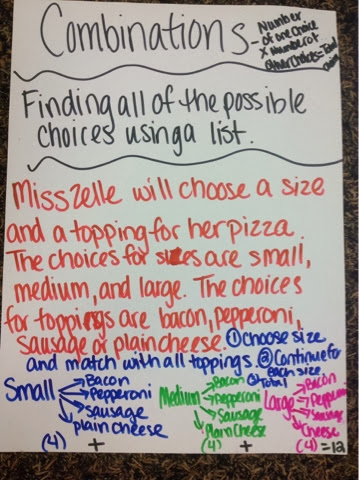 Combinations -
Number
of one choice
x number of
other choices = Total
choices
Finding all of the possible
choices using a list.
Misszelle will choose a size
and a topping for her pizza.
The choices for sizes are small,
medium, and large. The choices
for toppings are bacon, pepperoni,
sausage or plain cheese.
① choose size
and match with all toppings. ② Continue for
each size
③ Total
Small
Bacon
Pepperoni
sausage
plain cheese
(4) +
Medium
Bacon
Pepperoni
Sausage
Plain Cheese
(4) +
Large
Bacon
Pepperoni
Sausage
Cheese
(4) = 12